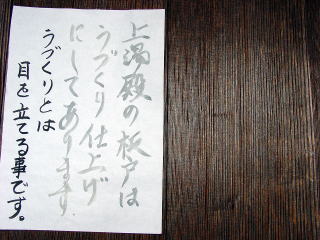 上湯殿の板戸は
うづくり仕上げ
にしてあります
うづくりとは
目を立てる事です。